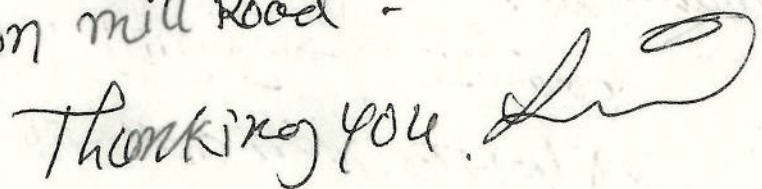 on mill Road -
Thanking you.